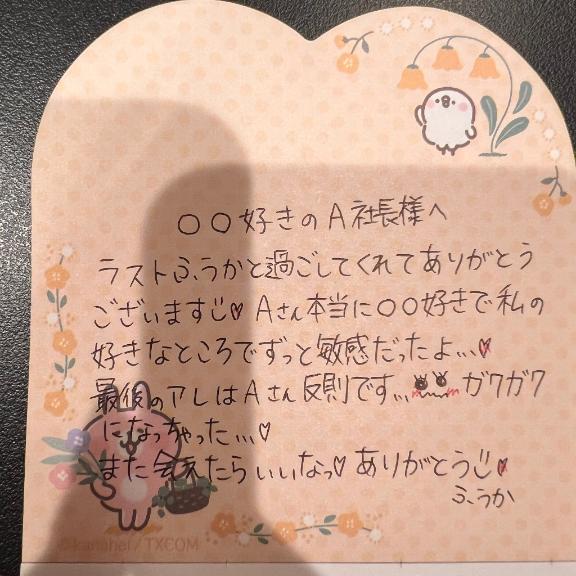 ○○好きのA社長様へ
ラストふうかと過ごしてくれてありがとう
ございます♡ Aさん本当に○○好きで私の
好きなところでずっと敏感だったよ…♡
最後のアレはAさん反則です… ガクガク
になっちゃった…♡
また会えたらいいなっ♡ ありがとう♡
ふうか
©kanahei/TXCOM